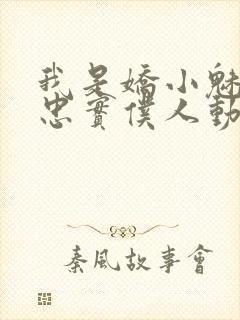 我是嬌小魅
忠實僕人動
秦風故事會